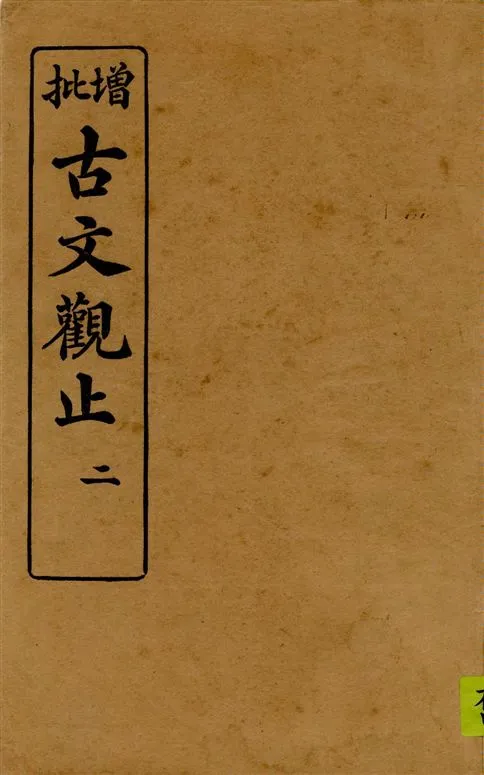 增批
古文觀止
二